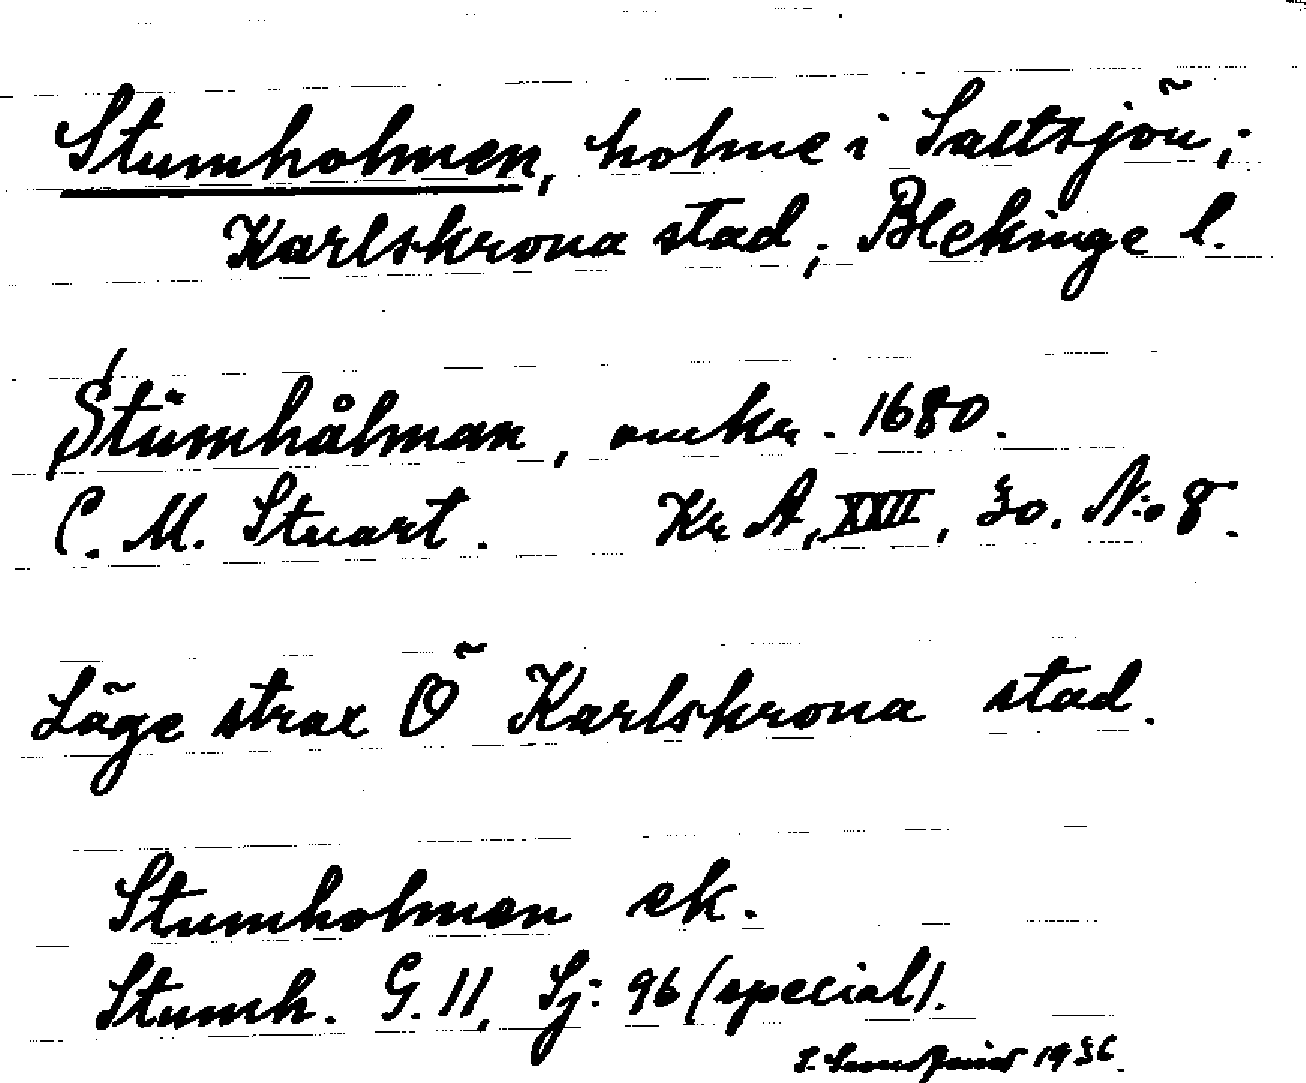 Stumholmen, holme i Saltsjön;
Karlskrona stad; Blekinge l.
Stümhålman, omkr. 1680.
C. M. Stuart. Kr A, XXII, No. 8.
Läge strax Ö Karlskrona stad.
Stumholmen ek.
Stumh. G. 11, Sj: 96 (special).
1936